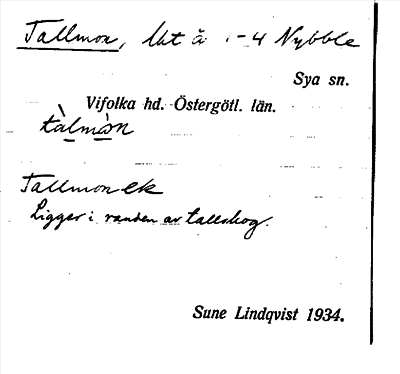 Tallmon, lht å 1-4 Nybble
Sya sn.
Vifolka hd. Östergötl. län.
tàlmòn
Tallmon ek
Ligger i randen av tallskog.
Sune Lindqvist 1934.